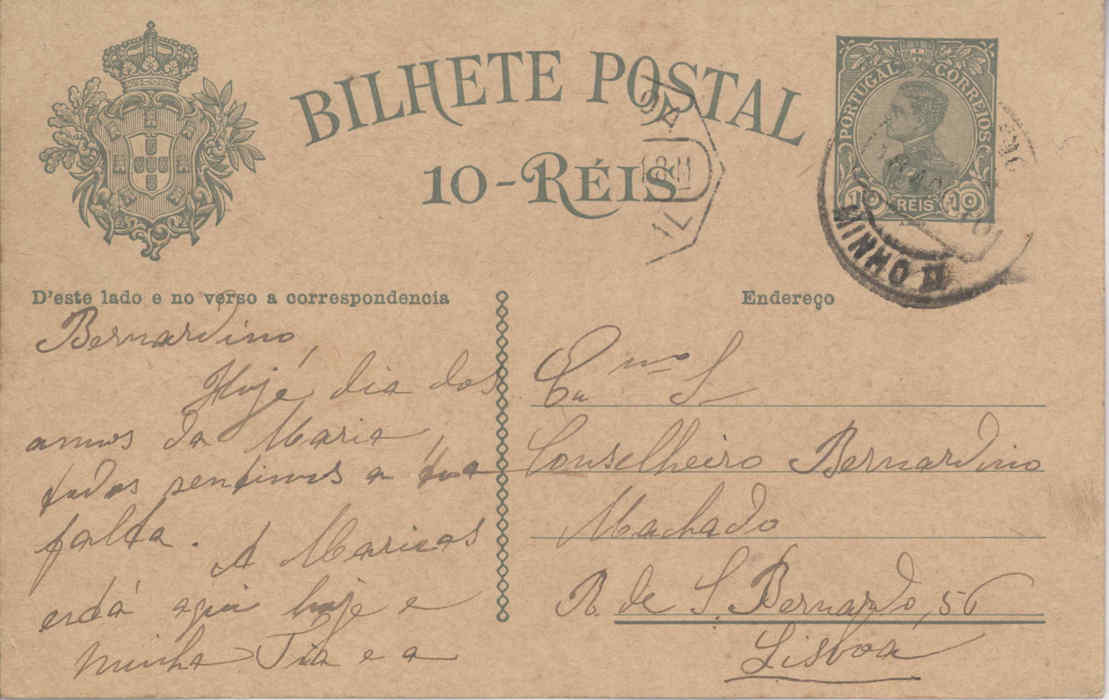 BILHETE POSTAL
10-RÉIS
PORTUGAL CORREIOS
10 REIS 10
MINHO II
D'este lado e no verso a correspondencia
Endereço
Bernardino,
Hoje dia dos
annos da Maria
todos sentimos a tua
falta. A Maricas
está aqui hoje e
minha Tia e a
Exmo S
Conselheiro Bernardino
Machado
R de S Bernardo, 56
Lisboa